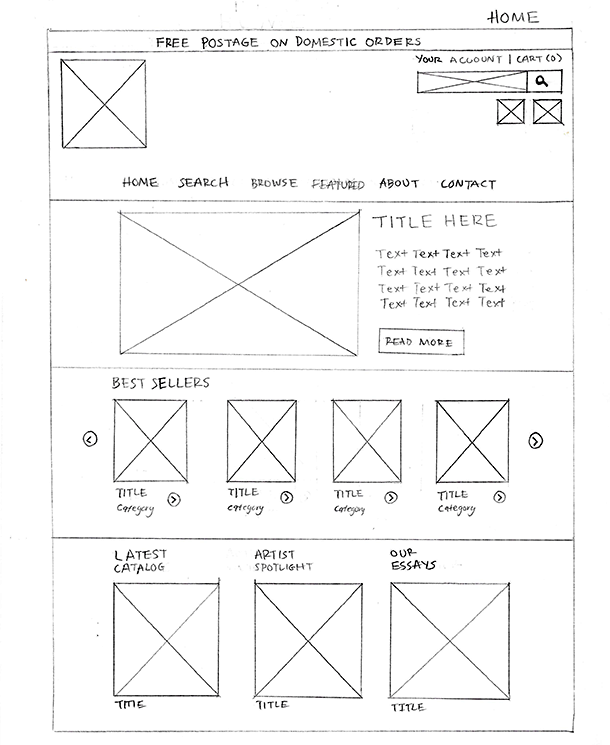 HOME
FREE POSTAGE ON DOMESTIC ORDERS
YOUR ACCOUNT | CART (0)
HOME SEARCH BROWSE FEATURED ABOUT CONTACT
TITLE HERE
Text Text Text Text
Text Text Text Text
Text Text Text Text
Text Text Text Text
READ MORE
BEST SELLERS
< >
TITLE > TITLE > TITLE > TITLE >
Category Category Category Category
LATEST ARTIST OUR
CATALOG SPOTLIGHT ESSAYS
TITLE TITLE TITLE